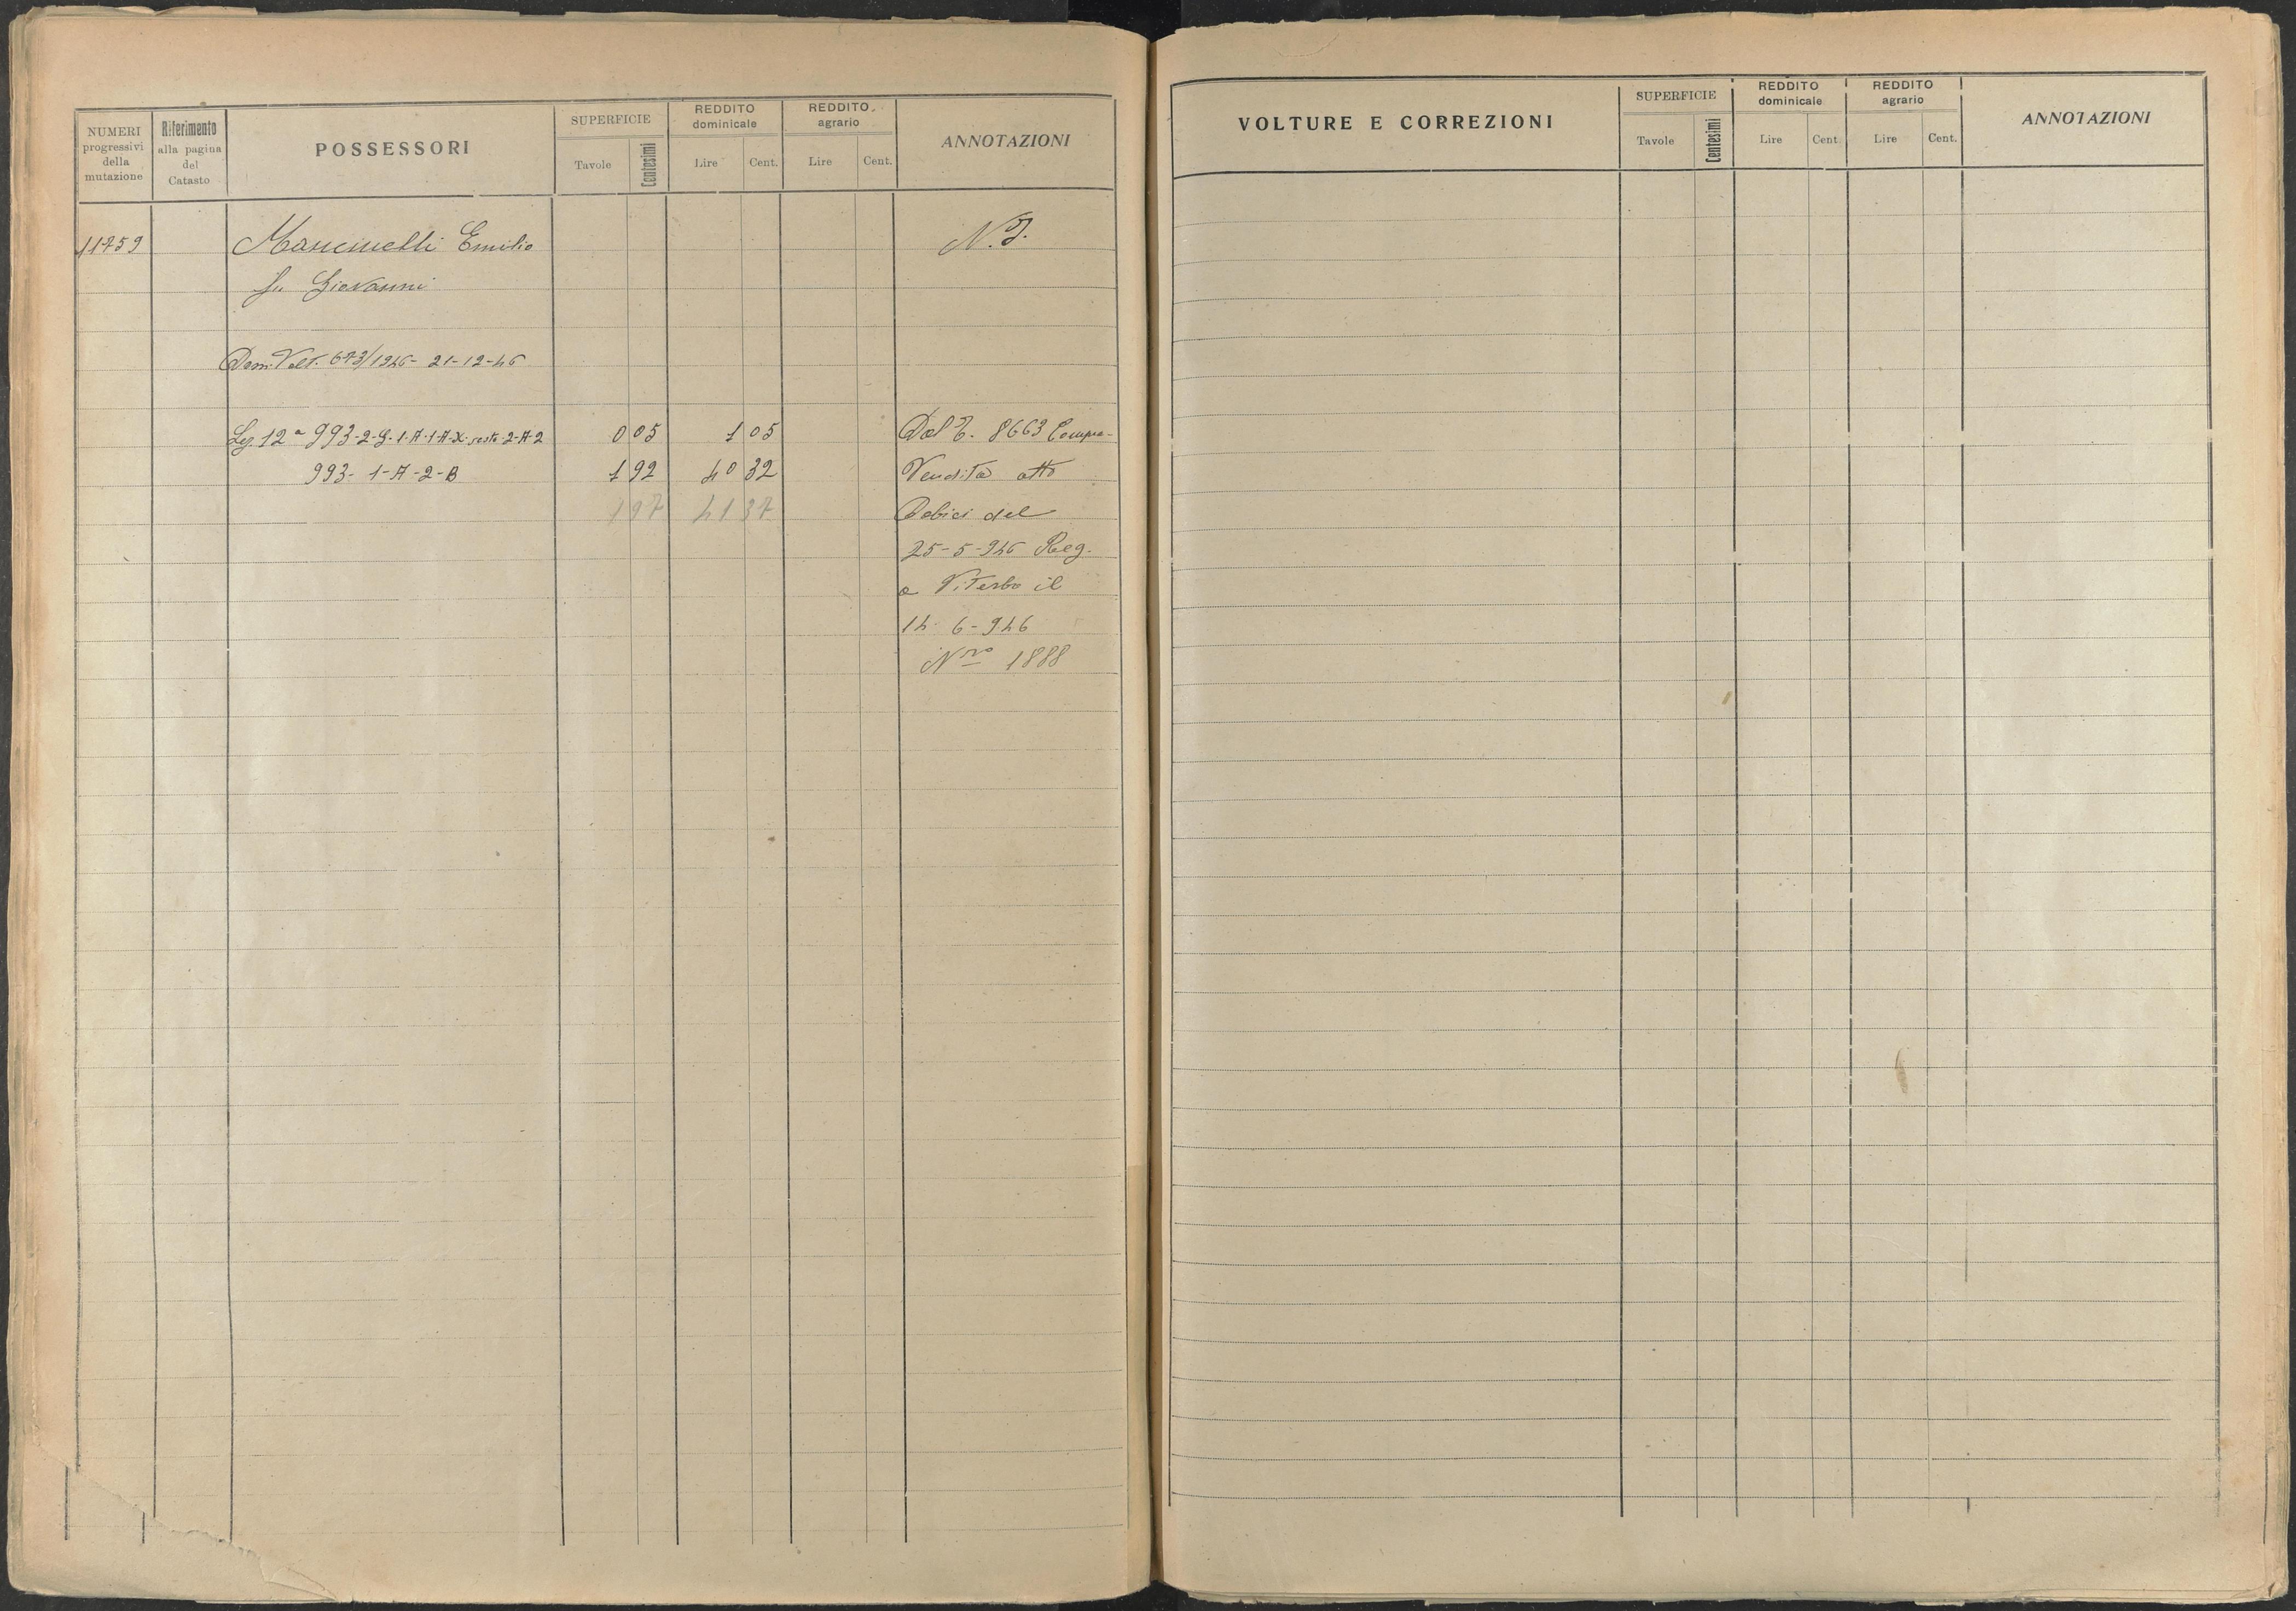 NUMERI progressivi della mutazione
Riferimento alla pagina del Catasto
POSSESSORI
SUPERFICIE
Tavole Centesimi
REDDITO dominicale
Lire Cent.
REDDITO agrario
Lire Cent.
ANNOTAZIONI
11759 Mancinelli Emilio N.I.
fu Giovanni
Dom. Volt. 673/1946- 21-12-46
Sez 12ª 993-2-G-1-A-1-A-X-resto-2-A-2 0 05 1 05 Dal T. 8663 Compra-
993- 1-A-2-B 1 92 40 32 Vendita atto
1 97 41 37 del
25-5-946 Reg.
a Viterbo il
14-6-946
Nro 1888
VOLTURE E CORREZIONI
SUPERFICIE
Tavole Centesimi
REDDITO dominicale
Lire Cent.
REDDITO agrario
Lire Cent.
ANNOTAZIONI